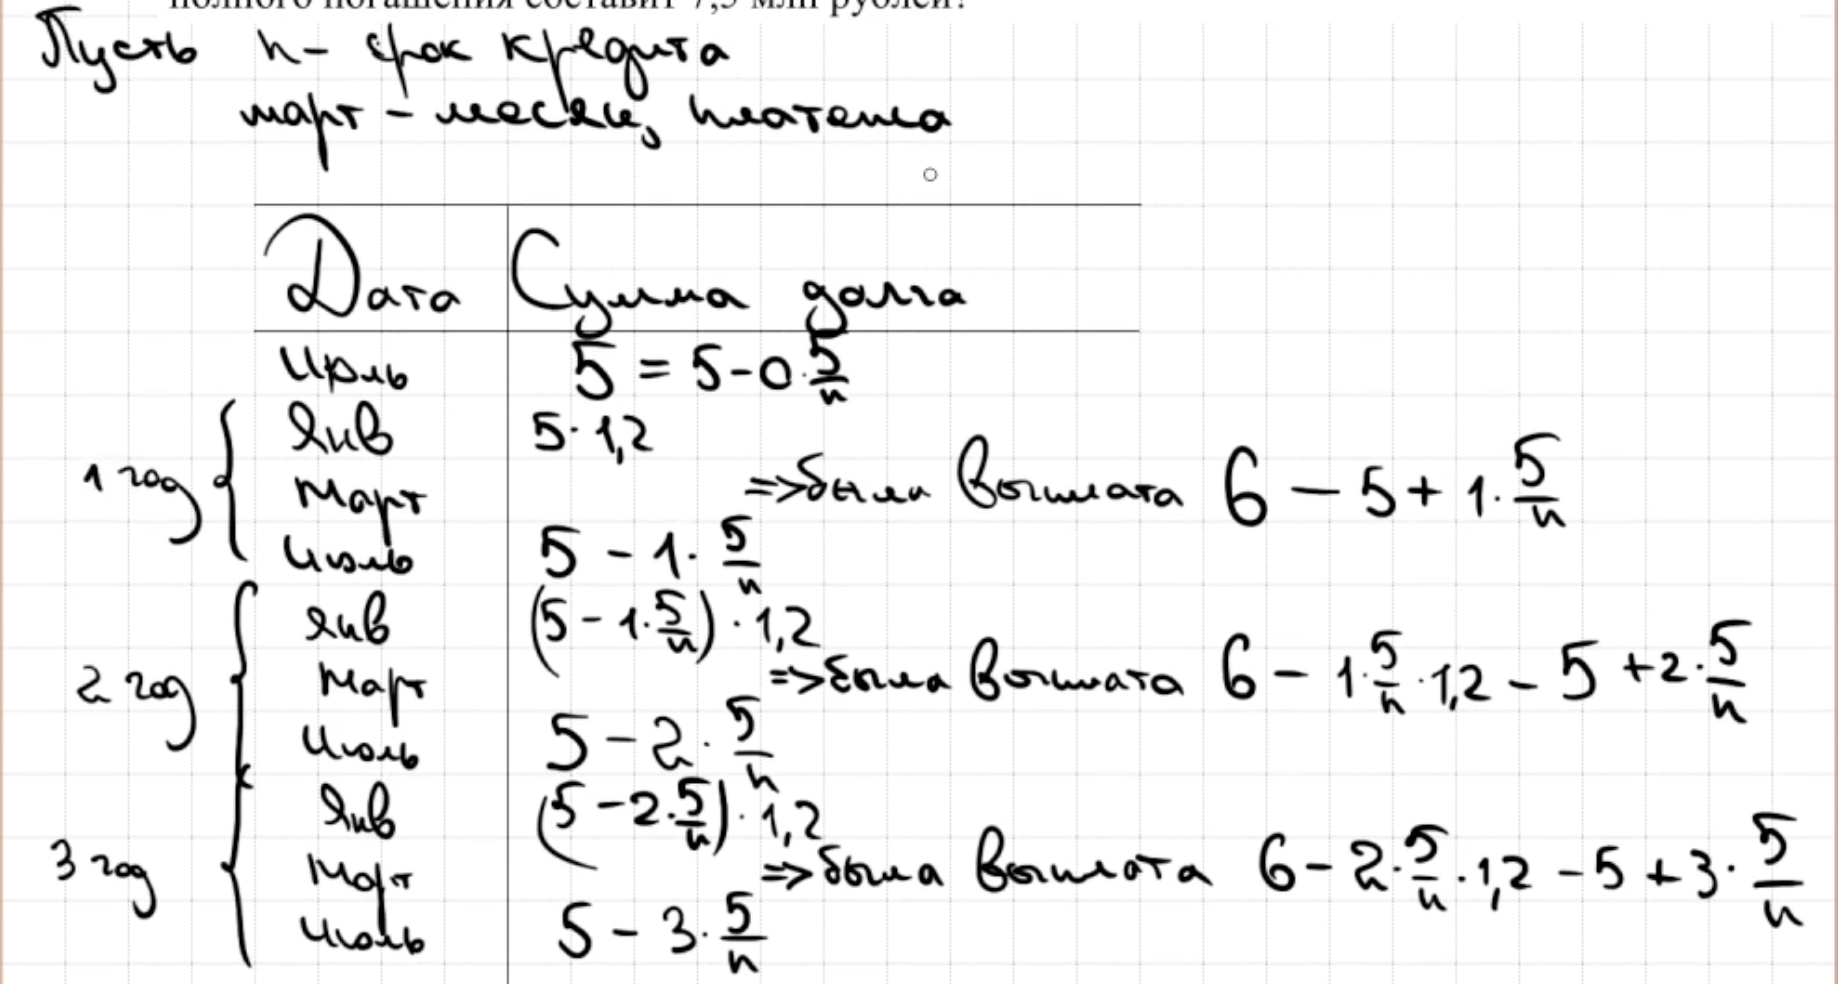 полного погашения составит 7,5 млн рублей?
Пусть n - срок кредита
март - месяц платежа
Дата Сумма долга
Июль 5 = 5 - 0 · 5/n
1 год
Янв 5 · 1,2
Март => была выплата 6 - 5 + 1 · 5/n
Июль 5 - 1 · 5/n
2 год
Янв (5 - 1 · 5/n) · 1,2
Март => была выплата 6 - 1 · 5/n · 1,2 - 5 + 2 · 5/n
Июль 5 - 2 · 5/n
3 год
Янв (5 - 2 · 5/n) · 1,2
Март => была выплата 6 - 2 · 5/n · 1,2 - 5 + 3 · 5/n
Июль 5 - 3 · 5/n